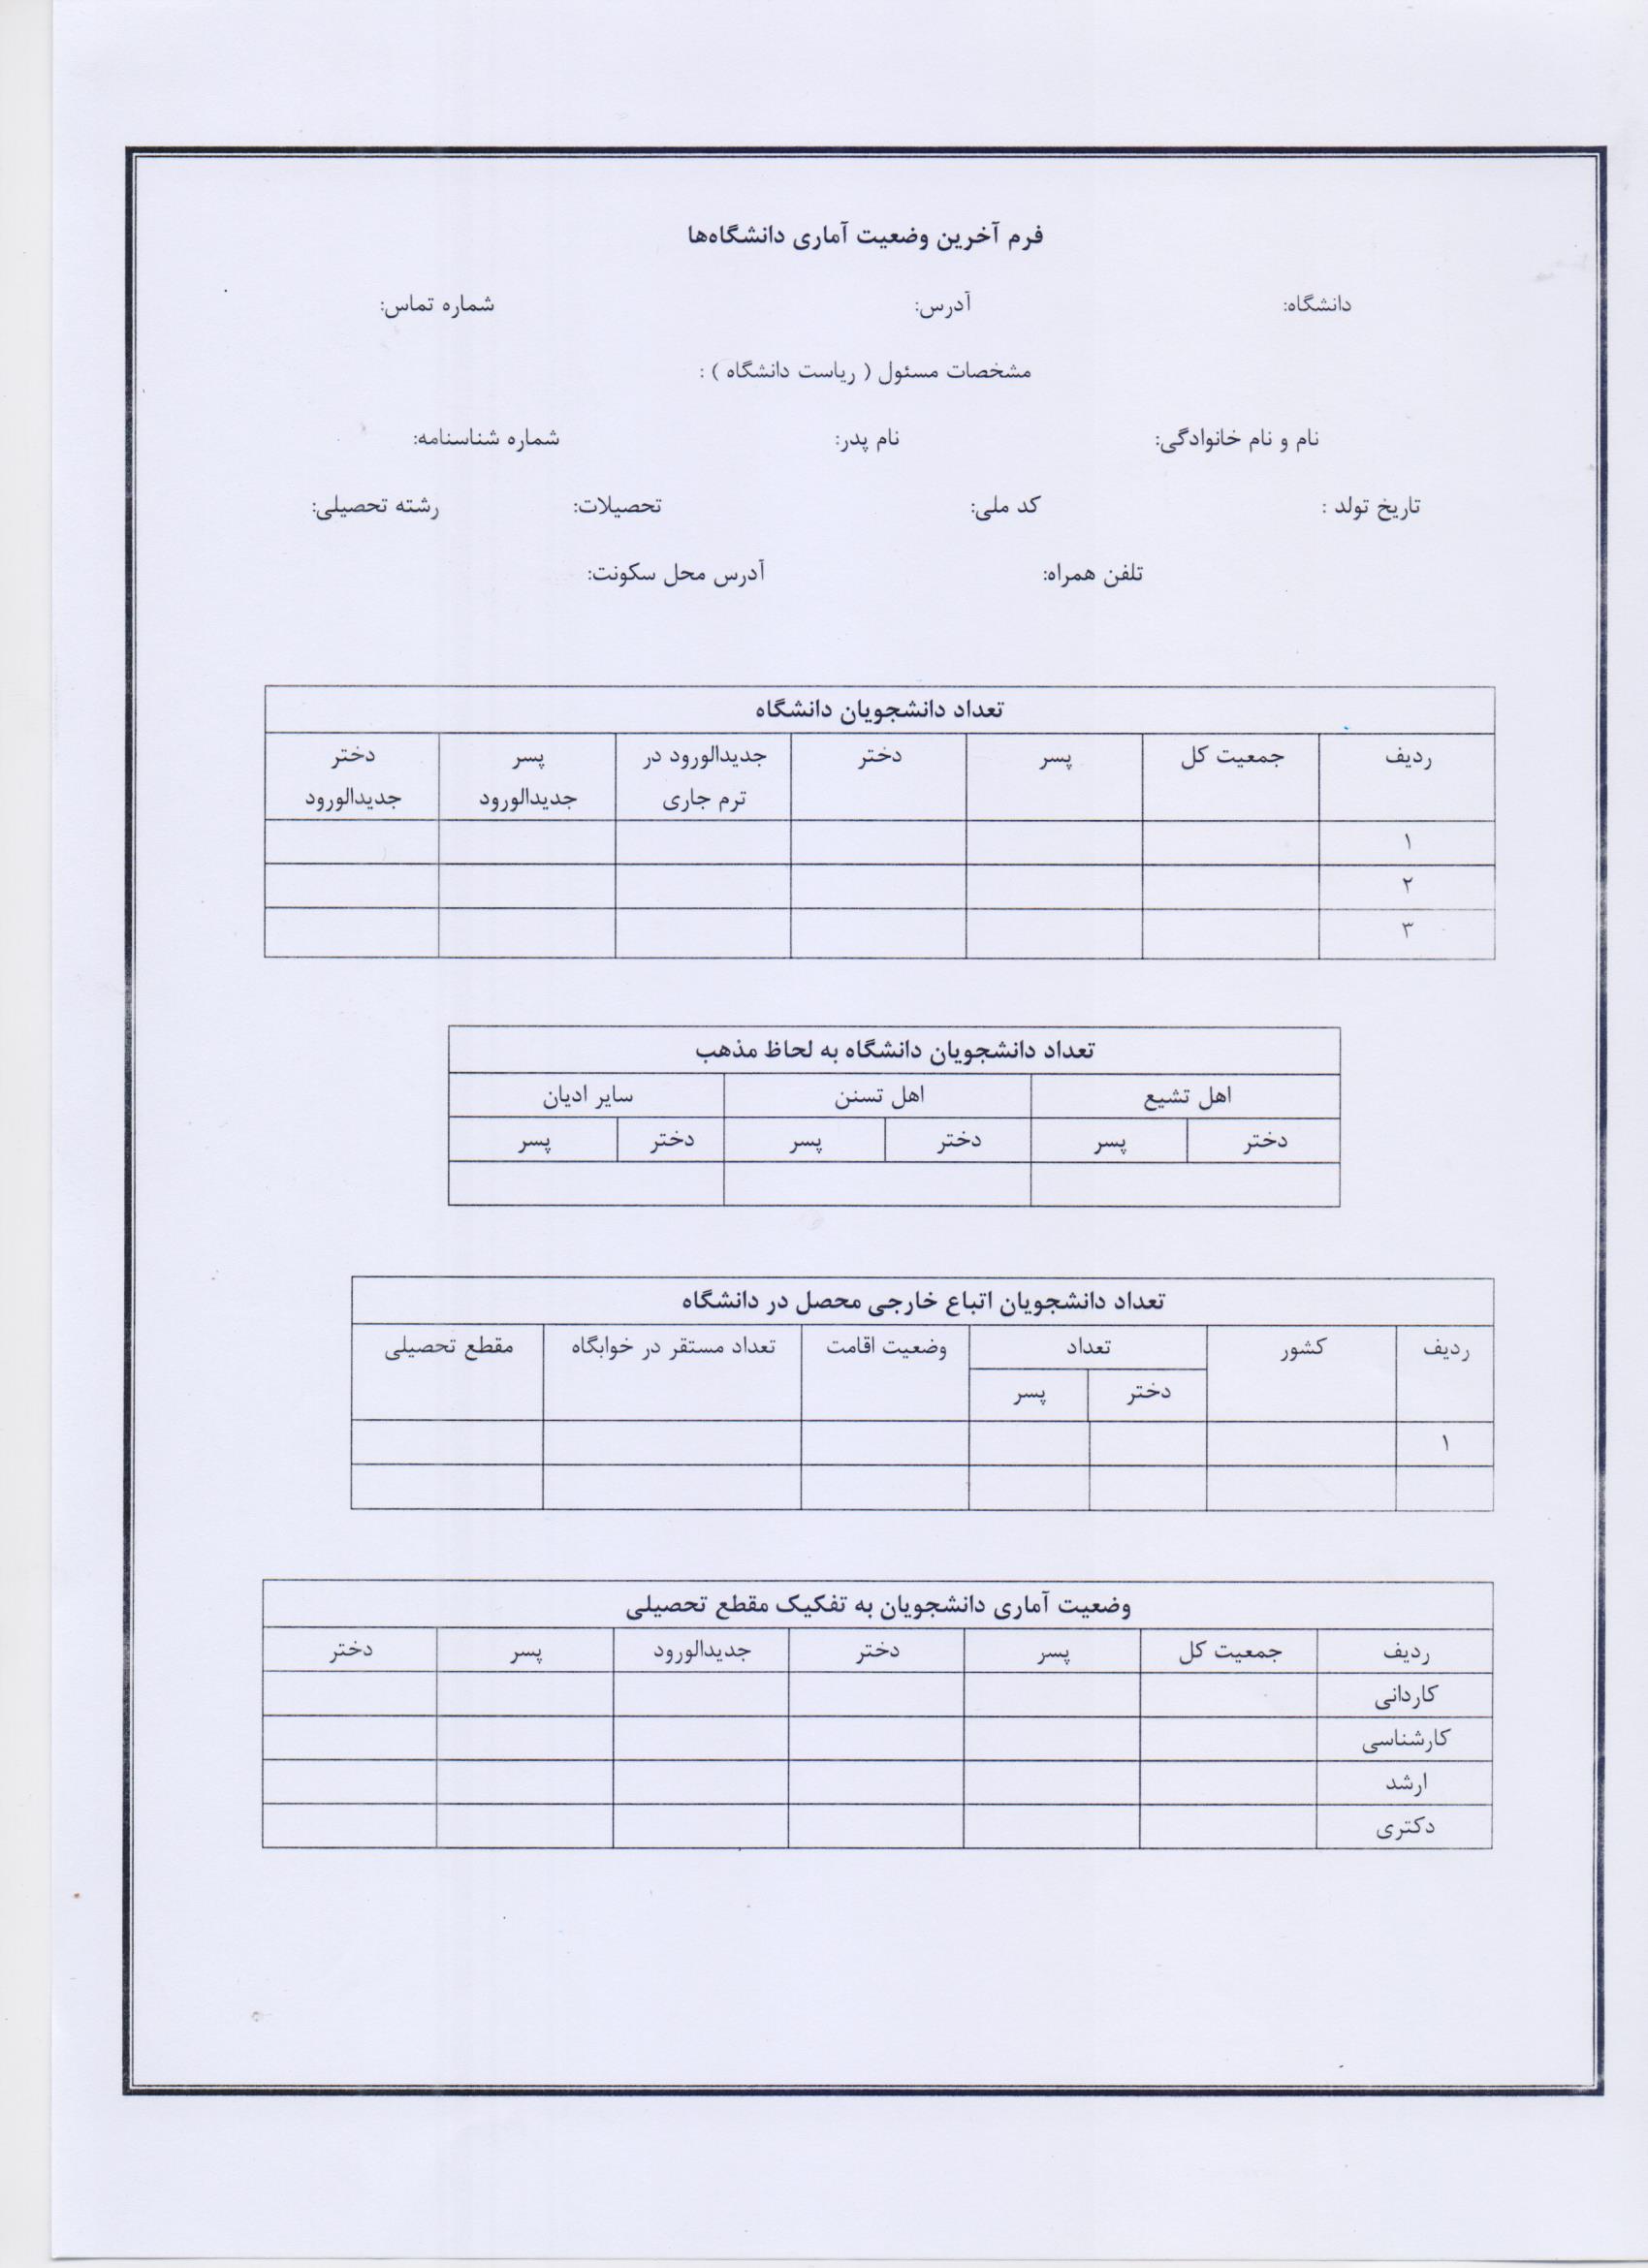 فرم آخرین وضعیت آماری دانشگاه‌ها
دانشگاه: آدرس: شماره تماس:
مشخصات مسئول ( ریاست دانشگاه ) :
نام و نام خانوادگی: نام پدر: شماره شناسنامه:
تاریخ تولد : کد ملی: تحصیلات: رشته تحصیلی:
تلفن همراه: آدرس محل سکونت:
تعداد دانشجویان دانشگاه
ردیف جمعیت کل پسر دختر جدیدالورود در پسر دختر
ترم جاری جدیدالورود جدیدالورود
۱
۲
۳
تعداد دانشجویان دانشگاه به لحاظ مذهب
اهل تشیع اهل تسنن سایر ادیان
دختر پسر دختر پسر دختر پسر
تعداد دانشجویان اتباع خارجی محصل در دانشگاه
ردیف کشور تعداد وضعیت اقامت تعداد مستقر در خوابگاه مقطع تحصیلی
دختر پسر
۱
وضعیت آماری دانشجویان به تفکیک مقطع تحصیلی
ردیف جمعیت کل پسر دختر جدیدالورود پسر دختر
کاردانی
کارشناسی
ارشد
دکتری